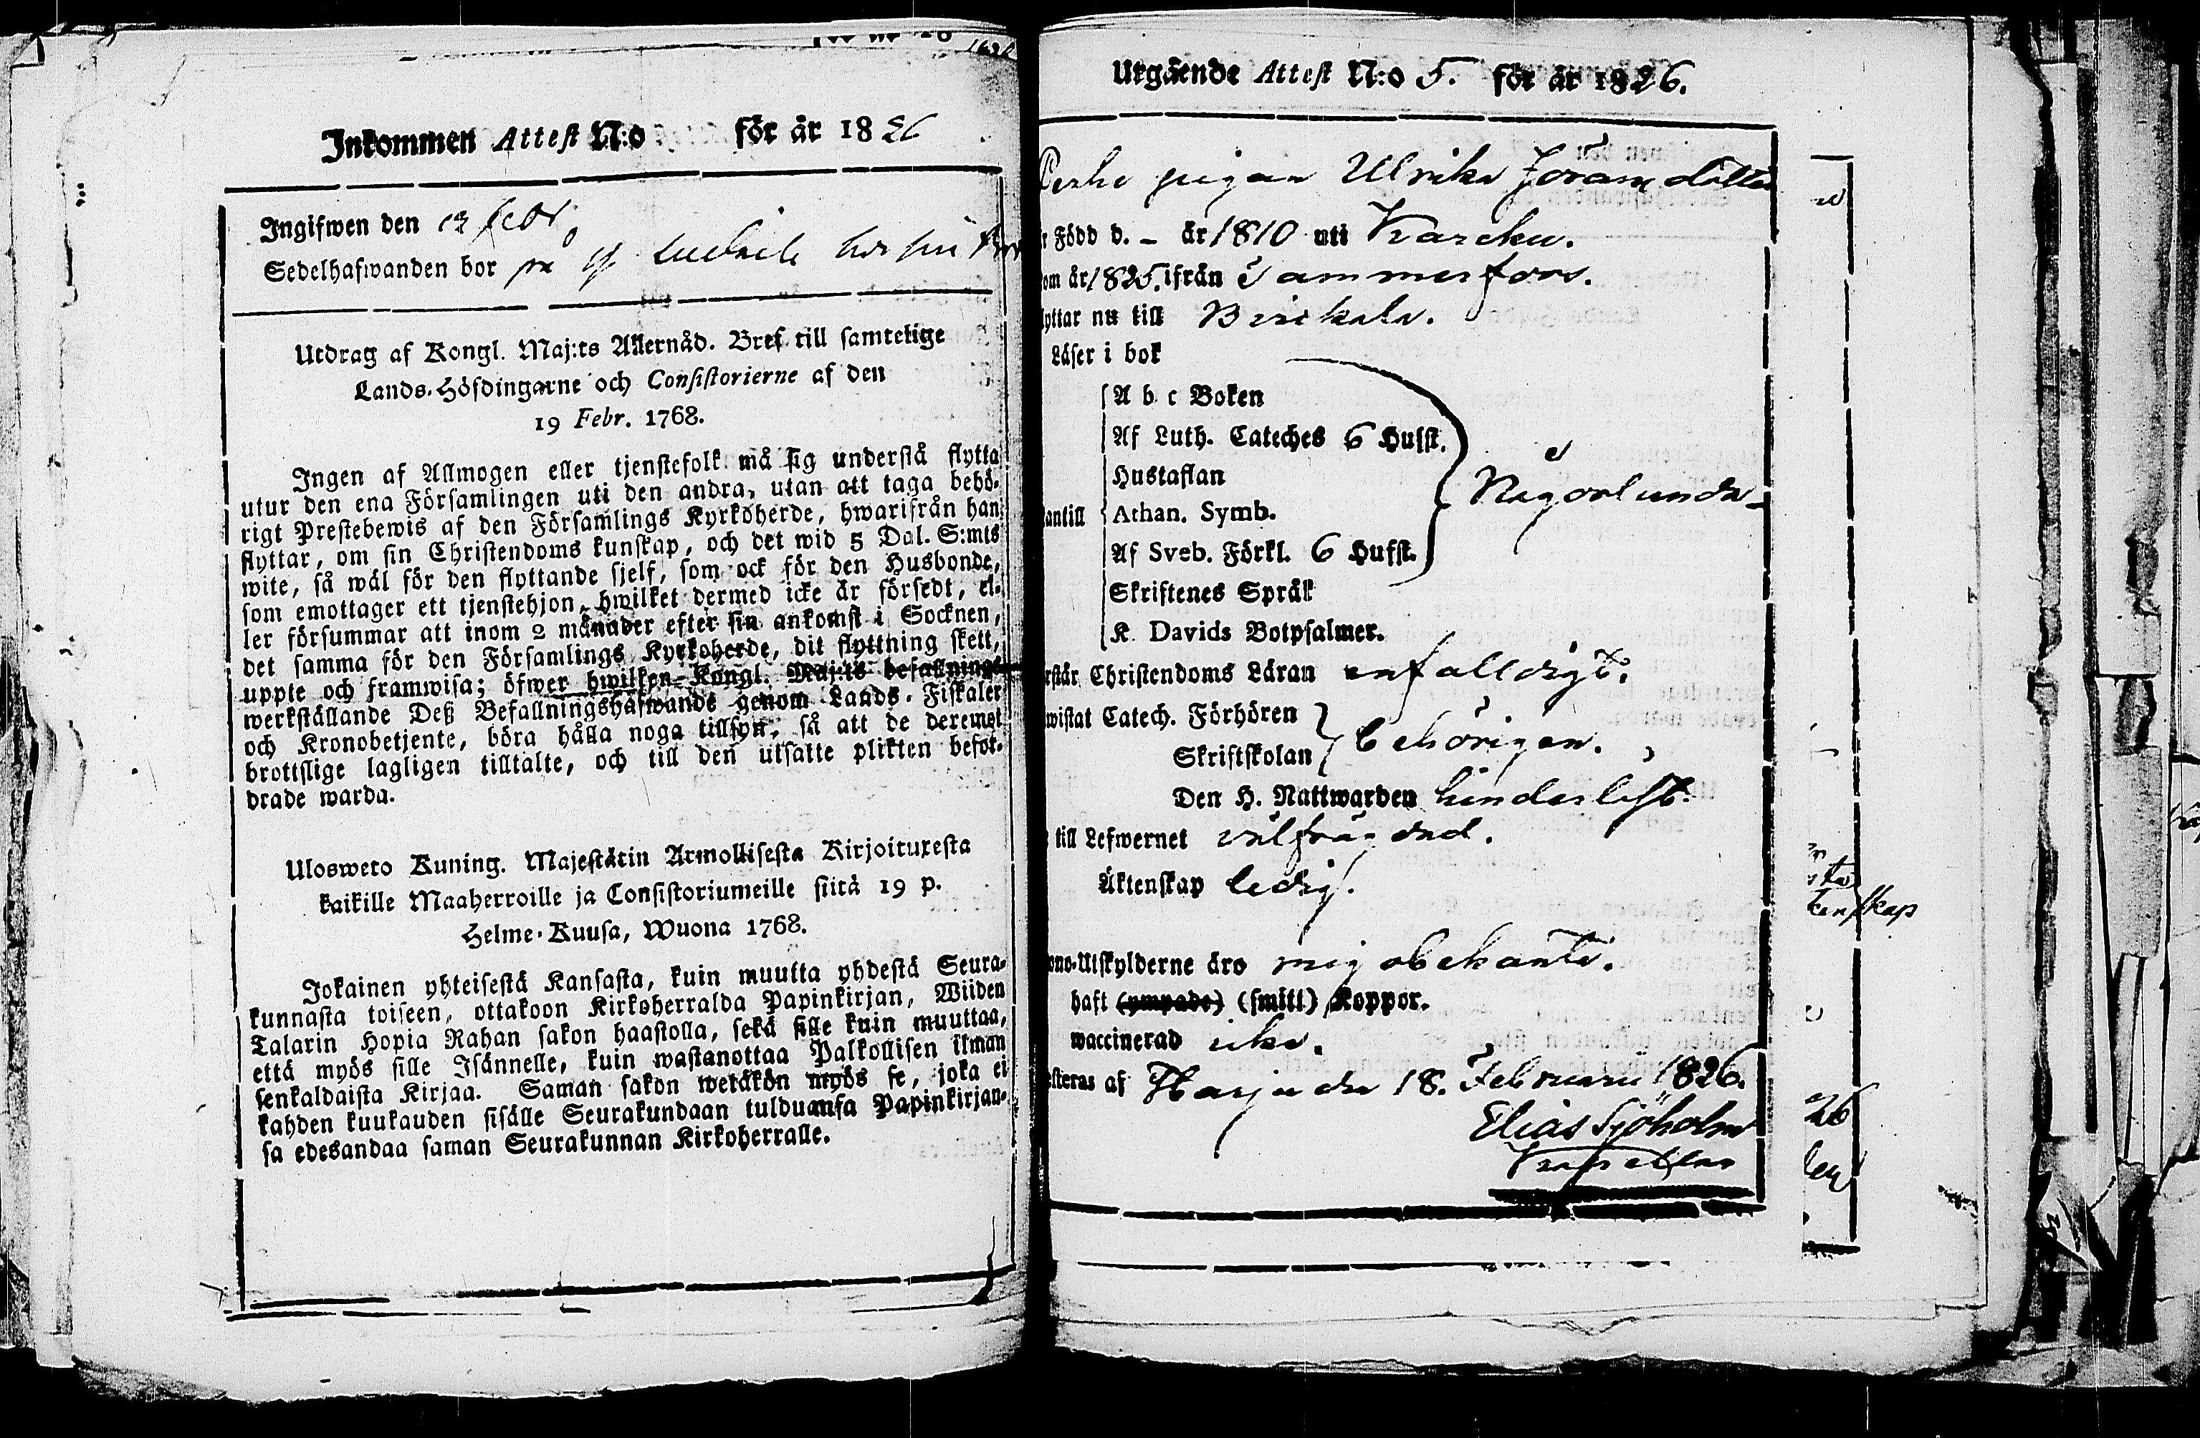 Inkommen Attest N:o för år 1826
Ingifwen den 19 febr
Sedelhafwanden bor på
Utdrag af Kongl. Maj:ts Allernåd. Bref till samtelige
Lands-Höfdingarne och Consistorierne af den
19 Febr. 1768.
Ingen af Allmogen eller tjenstefolk må sig understå flytta
utur den ena Församlingen uti den andra, utan att taga behö-
rigt Prestebewis af den Församlings Kyrkoherde, hwarifrån han
flyttar, om sin Christendoms kunskap, och det wid 5 Dal. S:mts
wite, så wäl för den flyttande sjelf, som ock för den Husbonde,
som emottager ett tjenstehjon, hwilket dermed icke är försedt, el-
ler försummar att inom 2 månader efter sin ankomst i Socknen,
det samma för den Församlings Kyrkoherde, dit flyttning skett,
uppte och framwisa; öfwer hwilken Kongl. Maj:ts befallnings
werkställande Deß Befallningshafwande genom Lands-Fiskaler
och Kronobetjente, böra hålla noga tillsyn, så att de deremot
brottslige lagligen tilltalte, och till den utsatte plikten befor-
drade warda.
Ulosweto Kuning. Majestätin Armollisesta Kirjoituxesta
kaikille Maaherroille ja Consistoriumeille siitä 19 p.
Helme-Kuusa, Wuona 1768.
Jokainen yhteisestä Kansasta, kuin muutta yhdestä Seura-
kunnasta toiseen, ottakoon Kirkoherralda Papinkirjan, Wiiden
Talarin Hopia Rahan sakon haastolla, sekä sille kuin muuttaa,
että myös sille Isännelle, kuin wastanottaa Palkollisen ilman
senkaldaista Kirjaa. Saman sakon wetäkön myös se, joka ei
kahden kuukauden sisälle Seurakundaan tulduansa Papinkirjan-
sa edesandaa saman Seurakunnan Kirkoherralle.
Utgående Attest N:o 5. för år 1826.
pigan Ulrika Jöransdotter
Född d. – år 1810 uti Karcku.
om år 1825. ifrån Tammerfors.
yttar nu till Birckala.
Läser i bok
A b c Boken
Af Luth. Cateches 6 Hufst.
Hustaflan
antill Athan. Symb. Någorlunda
Af Sveb. Förkl. 6 Hufst.
Skriftenes Språk
K. Davids Botpsalmer.
rstår Christendoms Läran enfalldigt.
wistat Catech. Förhören
Skriftskolan behörigen.
Den H. Nattwarden hinderlöst.
till Lefwernet välfrägdad.
Äktenskap ledig.
ono-Utskylderne äro mig obekante.
haft (ympade) (smitt) Koppor.
waccinerad icke.
steras af Harju den 18. Februarii 1826.
Elias Sjöholm
Kapellan
kenskap
26